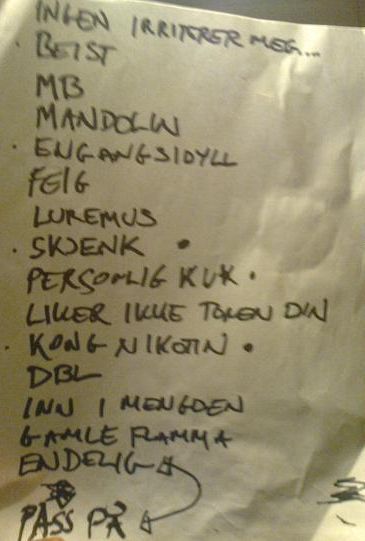 INGEN IRRITERER MEG...
· BEIST
MB
MANDOLIN
· ENGANGSIDYLL
FEIG
LUREMUS
· SKJENK •
PERSONLIG KUK •
LIKER IKKE TOKEN DIN
· KONG NIKOTIN •
DBL
INN I MENGDEN
GAMLE FLAMMA
ENDELIG
PASS PÅ